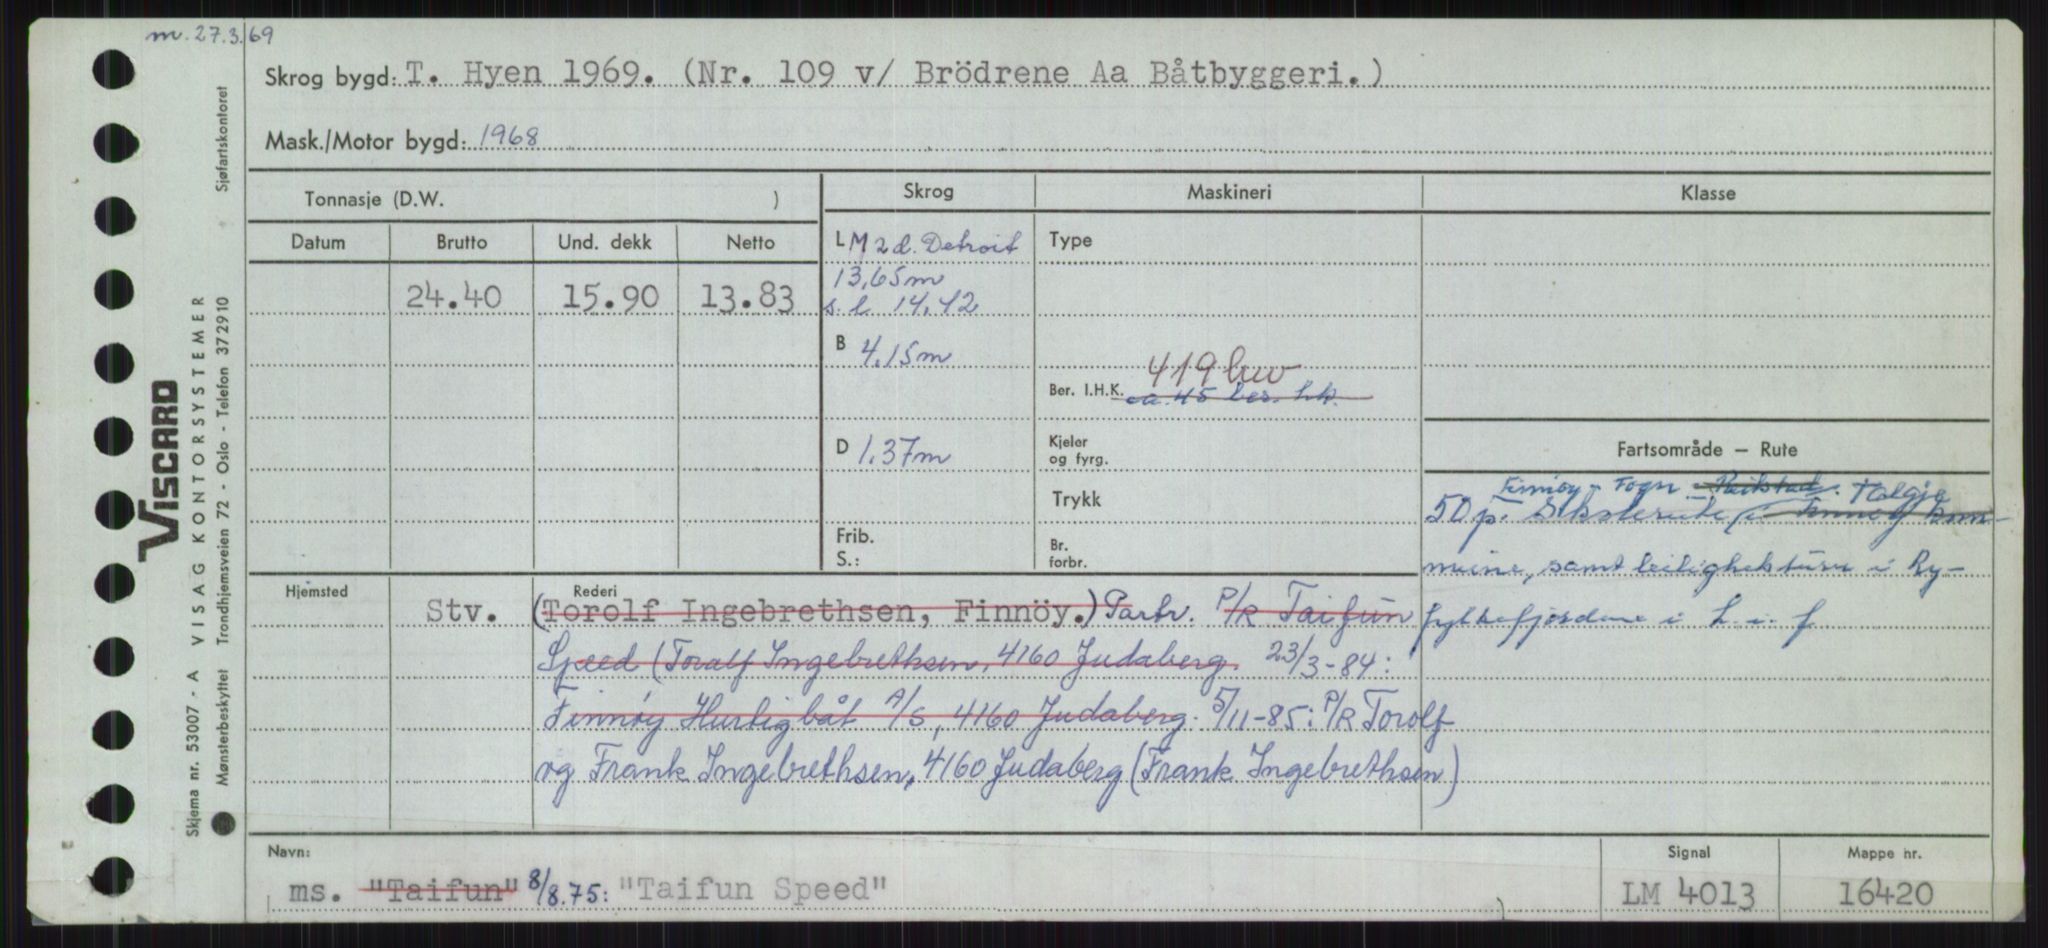 m. 27.3.69
Skrog bygd: T. Hyen 1969. (Nr. 109 v/ Brödrene Aa Båtbyggeri.)
Mask./Motor bygd: 1968
Tonnasje (D.W. )
Skrog
Maskineri
Klasse
Datum Brutto Und. dekk Netto
24.40 15.90 13.83
L M 2 d. Detroit
13,65m
s. l 14.42
B 4,15m
D 1.37m
Frib.
S.:
Type
419 bw
Ber. I.H.K. ca. 45 bes. hk.
Kjeler
og fyrg.
Trykk
Br.
forbr.
Fartsområde – Rute
Finnøy - Fogn - Talgje
50 p. i Finnøy kom-
mune, samt leilighetsturer i Ry-
fylkefjordene i L. i. f
Hjemsted
Rederi
Stv. (Torolf Ingebrethsen, Finnöy.) Partr. P/R Taifun
Speed (Toralf Ingebrethsen, 4160 Judaberg. 23/3-84:
Finnøy Hurtigbåt A/S, 4160 Judaberg. 5/11-85: P/R Torolf
og Frank Ingebrethsen, 4160 Judaberg (Frank Ingebrethsen)
Navn:
ms. "Taifun" 8/8.75: "Taifun Speed"
Signal
LM 4013
Mappe nr.
16420
Sjøfartskontoret
VISCARD
VISAG KONTORSYSTEMER
Trondhjemsveien 72 - Oslo - Telefon 372910
Skjema nr. 53007 - A
Mønsterbeskyttet